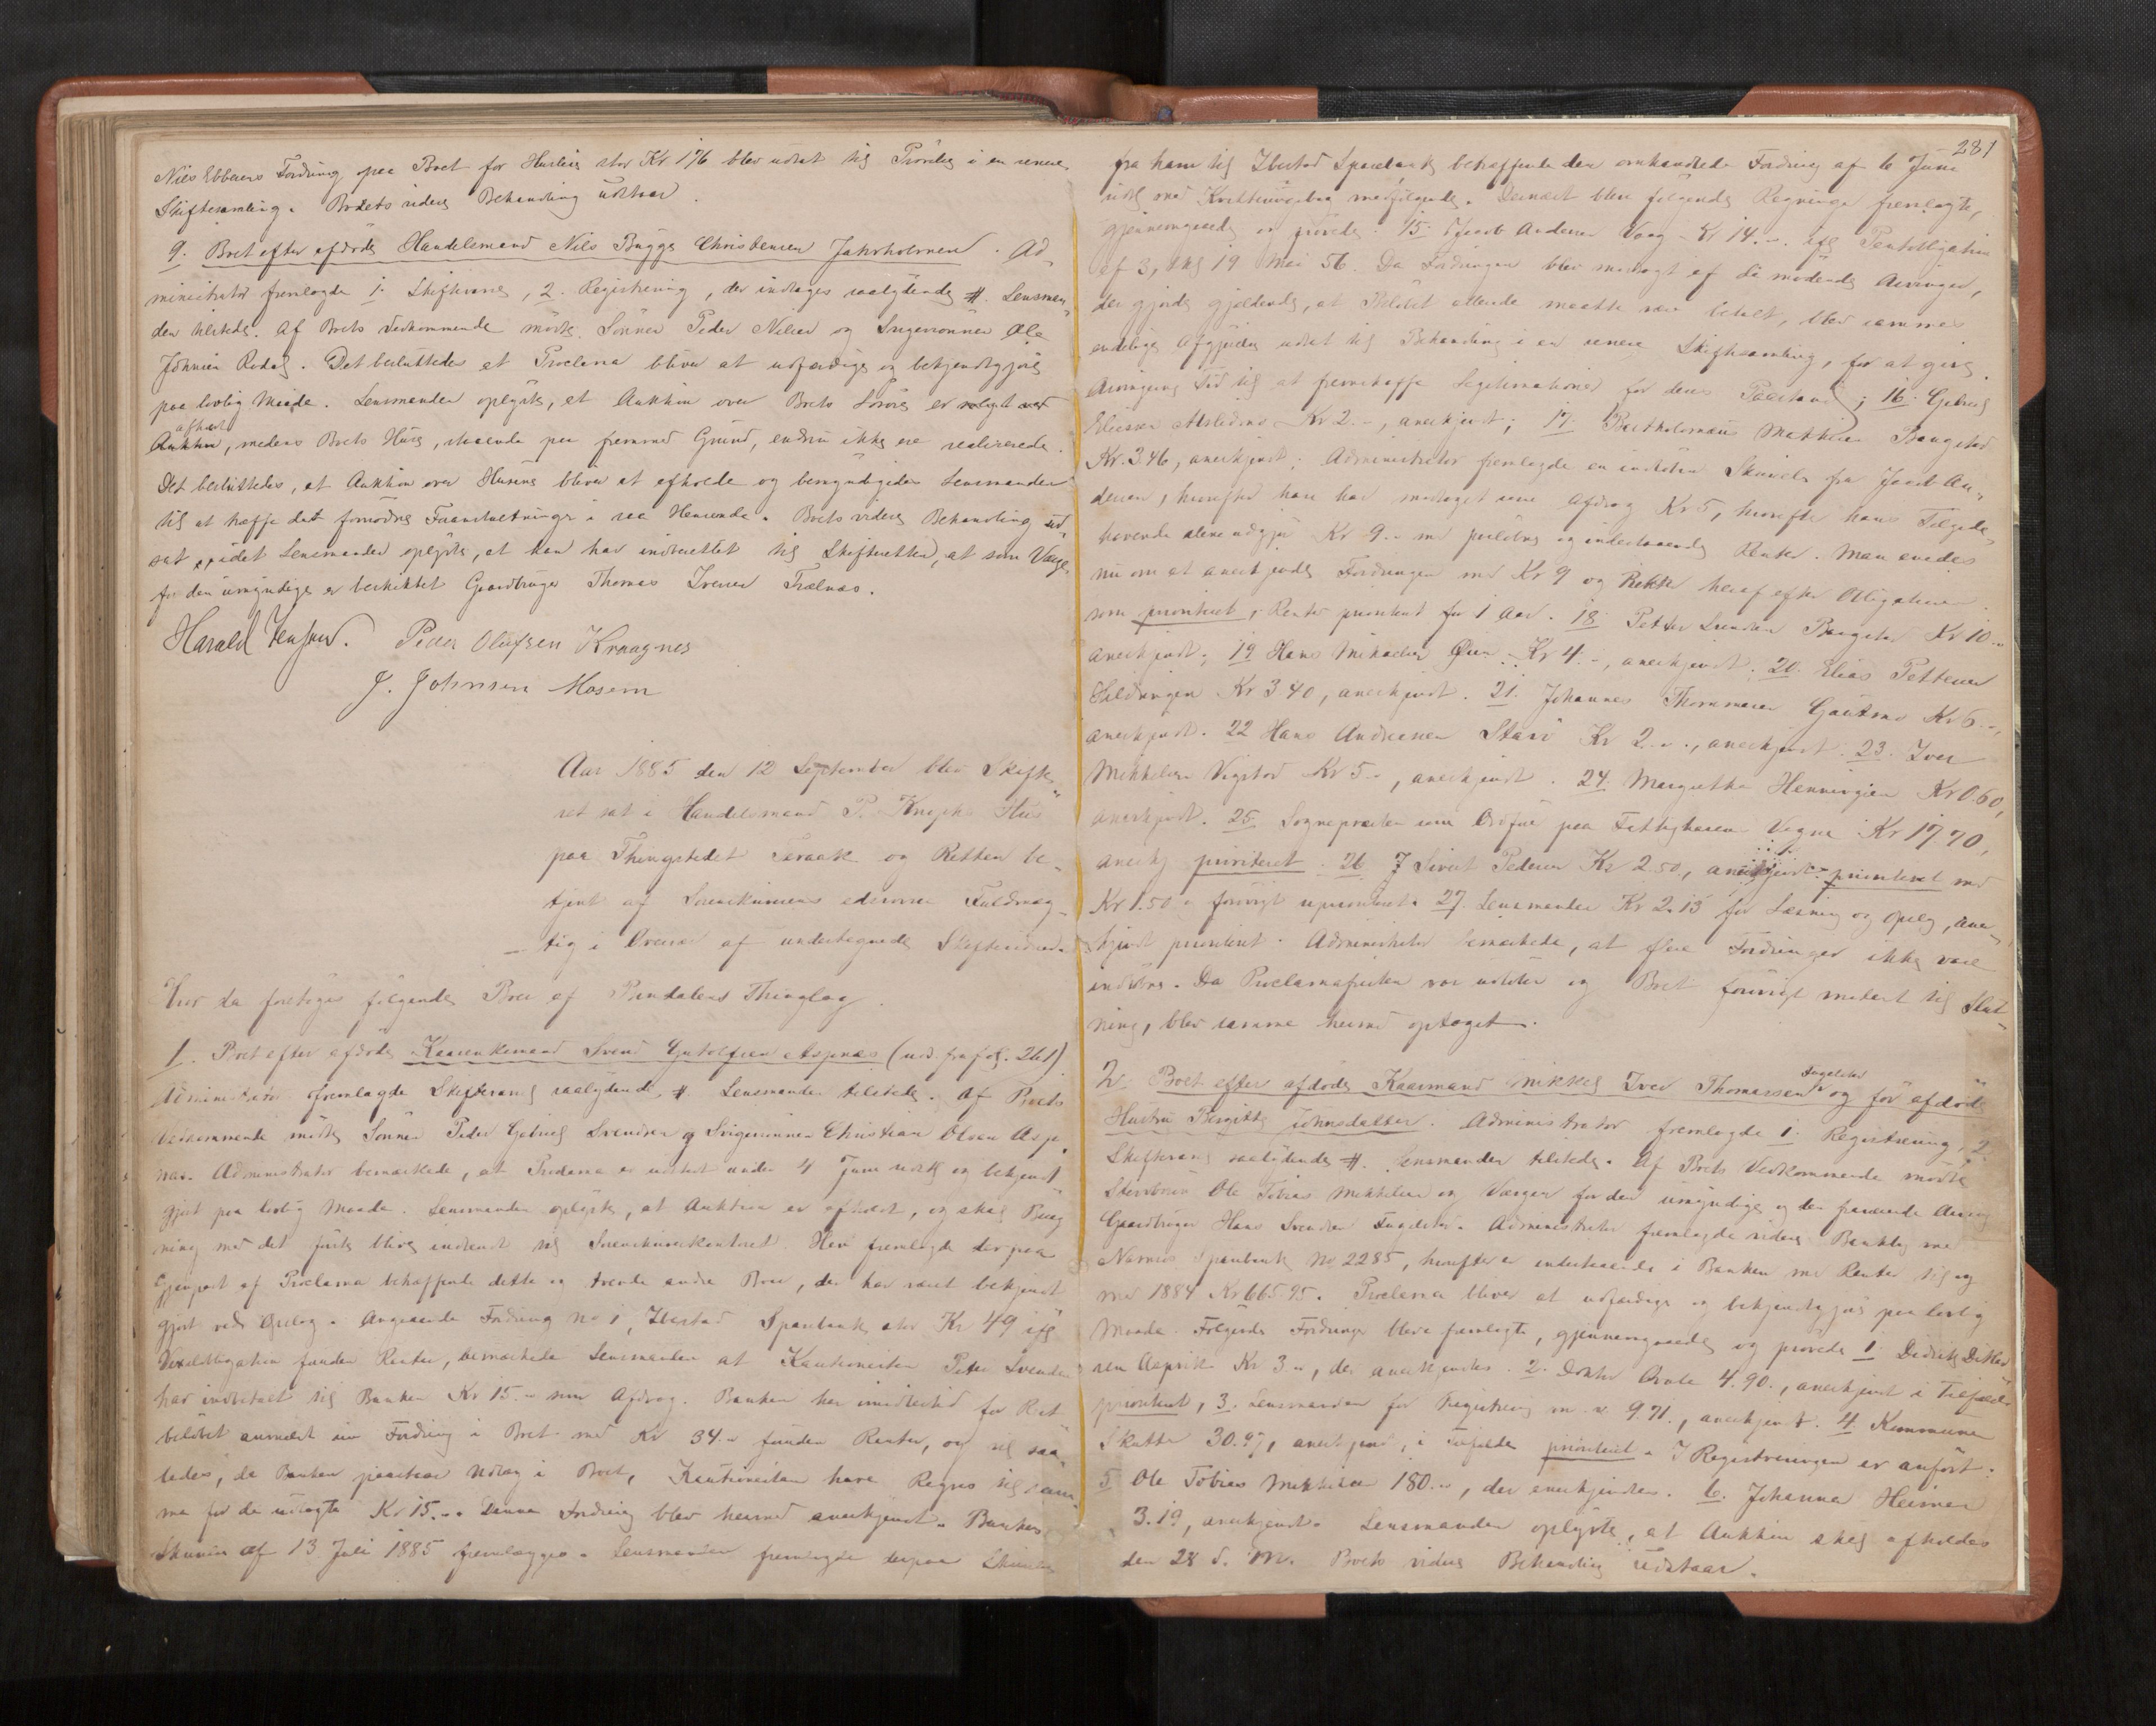 Nils Ebbesens Fordring paa Boet for Husleie stor Kr 176 blev udsat til Prövelse i en senere
Skiftesamling. Boets videre Behandling udstaar.
9. Boet efter afdöde Handelsmand Nils Bugge Christensen Jahrholmen. Ad-
ministrator fremlagde 1. Skifteanm, 2. Registrering, der indtages saalydende #. Lensman-
den tilstede. Af Boets Vedkommende mödte Sönnen Peder Nilsen og Svigersönnen Ole
Johnsen Rodal. Det besluttedes at Proclama bliver at udfærdige og bekjendtgjöre
paa lovlig Maade. Lensmanden oplyste, at Auktion over Boets Lösöre er
afholdt
, medens Boets Huse, staaende paa fremmed Grund, endnu ikke ere realiserede.
Det besluttedes, at Auktion over Husene bliver at afholde og bemyndigedes Lensmanden
til at træffe det fornödne Foranstaltninger i saa Henseende. Boets videre Behandling ud-
sat, idet Lensmanden oplyste, at han har indberettet til Skifteretten, at som Værge
for den umyndige er beskikket Gaardbruger Thomas Iversen Trælnæs.
Harald Jensen. Peder Olufsen Kraagnes
J. Johnsen Mosem
Aar 1885 den 12 September blev Skifte-
ret sat i Handelsmand P. Hus
paa Thingstedet og Retten be-
tjent af Sorenskriverens edsvorne Fuldmæg-
tig i Overvær af undertegnede Skiftevidner.
Hvor da foretoges fölgende Boer af Thinglag.
1. Boet efter afdöde Kaarenkemand Svend Aspenæs (uds. fra fol. 261)
Administrator fremlagde Skifteanm saalydende #. Lensmanden tilstede. Af Boets
Vedkommende mödte Sönnen Peder Gabriel Svendsen og Svigersönnen Christian Olsen Asp-
næs. Administrator bemærkede, at Proclama er udstedt under 4 Juni sidstl og bekjendt
gjort paa lovlig Maade. Lensmanden oplyste, at Auktion er afholdt, og skal Bereg
ning med det förste blive indsendt til Sorenskriverkontoret. Han fremlagde derpaa
Gjenpart af Proclama betræffende dette og trende andre Boer, der har været bekjendt
gjort ved Opslag. Angaaende Fordring No 1, Ibestad Sparebank stor Kr 49 ifl
Vexelobligation foruden Renter, bemærkede Lensmanden at Kautionisten Peder Svendsen
har indbetalt til Banken Kr 15.- som Afdrag. Banken har imidlertid for Rest
belöbet anmeldt sin Fordring i Boet med Kr 34.- foruden Renter, og vil saa-
ledes, da Banken paastaar Udlæg i Boet, Kautionisten have Regres til sam-
me for de udlagte Kr 15.-. Denne Fordring blev herved anerkjendt. Bankens
Skrivelse af 13 Juli 1885 fremlægges. Lensmanden fremlagde derpaa Skrivelse
281
fra ham til Ibestad Sparebank betræffende den omhandlede Fordring af 6 Juni
sidstl med Kvitteringsbog medfölgende. Dernæst blev fölgende Regninger fremlagte,
gjennemgaaede og prövede: 15. Jacob Andersen Vaag - Kr 14.-. ifl Pantobligation
af 3, tkl 19 Mai 56. Da Fordringen blev modsagt af de mödende Arvinger,
der gjorde gjældende, at Belöbet allerede maatte være betalt, blev sammes
endelige Afgjörelse udsat til Behandling i en senere Skiftesamling, for at give
Arvingerne Tid til at fremskaffe Legitimationer for deres Paastand; 16. Gabriel
Eliesen Kr 2.-, anerkjendt; 17 Bartholomæus Mekkelsen Baugstad
Kr. 3.46, anerkjendt; Administrator fremlagde en indlöben Skrivelse fra Jacob An-
dersen, hvorefter han har modtaget som Afdrag Kr 5, hvorefter hans Tilgode-
havende alene udgjör Kr 9.- med paalöbne og indestaaende Renter. Man enedes
nu om at anerkjende Fordringen med Kr 9 og Renter heraf efter Obligationen
som prioriteret, Renter prioriteret for 1 Aar. 18. Petter Svendsen Baugstad Kr 10.-
anerkjendt; 19 Hans Mikaelsen Öien Kr 4.-, anerkjendt; 20. Elias Pettersen
Kr 3 40, anerkjendt. 21. Johannes Thommesen Kr 6.-,
anerkjendt. 22 Hans Andreasen Kr 2.-., anerkjendt. 23. Iver
Mekkelsen Vigstad Kr 5.-, anerkjendt. 24. Margrethe Henningsen Kr 0.60,
anerkjendt. 25. Sognepræsten som Ordförer paa Fattigkassens Vegne Kr 17.70,
anerkj prioriteret. 26 J Sivert Pedersen Kr 2.50, anerkjendt prioriteret med
Kr 1.50 og forövrigt uprioriteret. 27. Lensmanden Kr 2.15 for Læsning og Opslag, aner-
kjendt prioriteret. Administrator bemærkede, at flere Fordringer ikke vare
indlöbne. Da Proclamafristen var udlöben og Boet forövrigt modent til Slut-
ning, blev samme hermed optaget.
2. Boet efter afdöde Kaarmand Mikkel Iver Thomassen Fugelstad og för afdöde
Hustru Birgitte Johnsdatter. Administrator fremlagde 1. Registrering, 2
Skifteanm saalydende #. Lensmanden tilstede. Af Boets Vedkommende mödte
Stervbösön Ole Tobias Mekkelsen og Værgen for den umyndige og den fraværende Arving
Gaardbruger Hans Svendsen Fugelstad. Administrator fremlagde videre Bankbog med
Sparebank No 2285, hvorefter er indestaaende i Banken med Renter til og
med 1884 Kr 665.95. Proclama bliver at udfærdige og bekjendtgjöre paa lovlig
Maade. Fölgende Fordringer bleve fremlagte, gjennemgaaede og prövede 1. Didrik Detlev
sen Aspvik Kr 3.-, der anerkjendtes. 2. Doktor 4.90., anerkjendt i Tilfælde
prioriteret, 3. Lensmanden for Registrering m. v. 9.71., anerkjendt. 4. Kommune
Skatter 30.97, anerkjendt, i Tilfælde prioriteret. I Registreringen er anfört:
5 Ole Tobias Mekkelsen 180.-, der anerkjendtes. 6. Johanna Heimer
3.19, anerkjendt. Lensmanden oplyste, at Auktion skal afholdes
den 28 d. M. Boets videre Behandling udstaar.